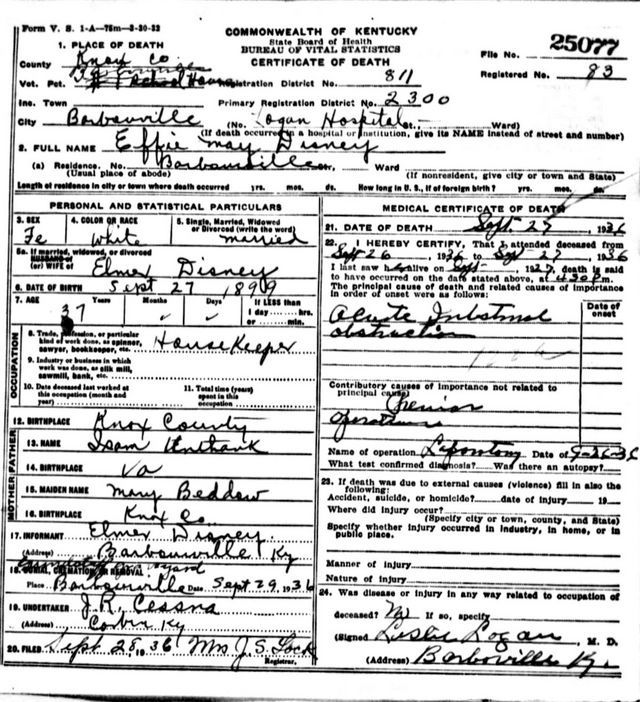 Form V. S. 1-A—75m—3-30-32
COMMONWEALTH OF KENTUCKY
State Board of Health
BUREAU OF VITAL STATISTICS
CERTIFICATE OF DEATH
File No. 25077
Registered No. 83
1. PLACE OF DEATH
County Knox Co
Vot. Pct. School House
Registration District No. 811
Inc. Town
Primary Registration District No. 2300
City Barbourville (No. Logan Hospital St. Ward)
(If death occurred in a hospital or institution, give its NAME instead of street and number)
2. FULL NAME Effie May Disney
(a) Residence. No. Barbourville St., Ward
(Usual place of abode) (If nonresident, give city or town and State)
Length of residence in city or town where death occurred yrs. mos. ds. How long in U. S., if of foreign birth? yrs. mos. ds.
PERSONAL AND STATISTICAL PARTICULARS
3. SEX Fe
4. COLOR OR RACE White
5. Single, Married, Widowed or Divorced (write the word) married
5a. If married, widowed or divorced
HUSBAND of
(or) WIFE of Elmer Disney
6. DATE OF BIRTH Sept 27 1899
7. AGE 37 Years Months Days If LESS than
1 day hrs.
or min.
OCCUPATION
8. Trade, profession, or particular
kind of work done, as spinner,
sawyer, bookkeeper, etc. House Keeper
9. Industry or business in which
work was done, as silk mill,
sawmill, bank, etc.
10. Date deceased last worked at
this occupation (month and
year)
11. Total time (years)
spent in this
occupation
12. BIRTHPLACE Knox County
FATHER
13. NAME Isam Unthank
14. BIRTHPLACE Va
MOTHER
15. MAIDEN NAME Mary Beddow
16. BIRTHPLACE Knox Co.
17. INFORMANT Elmer Disney
(Address) Barbourville Ky
18. BURIAL, CREMATION OR REMOVAL
Place Barbourville Date Sept 29, 1936
19. UNDERTAKER J. R. Cessna
(Address) Corbin Ky
20. FILED Sept 28, 1936 Mrs J. S. Lock
Registrar.
MEDICAL CERTIFICATE OF DEATH
21. DATE OF DEATH Sept. 27, 1936
22. I HEREBY CERTIFY, That I attended deceased from
Sept 26, 1936 to Sept 27, 1936
I last saw h alive on Sept 27, death is said
to have occurred on the date stated above, at 4:30 P m.
The principal cause of death and related causes of importance
in order of onset were as follows:
Date of
onset
Acute Intestinal
obstruction
Contributory causes of importance not related to
principal cause:
operations
Name of operation Date of 9-26-36
What test confirmed diagnosis? Was there an autopsy?
23. If death was due to external causes (violence) fill in also the
following:
Accident, suicide, or homicide? date of injury 19
Where did injury occur?
(Specify city or town, county, and State)
Specify whether injury occurred in industry, in home, or in
public place.
Manner of injury
Nature of injury
24. Was disease or injury in any way related to occupation of
deceased? No If so, specify
(Signed) Leslie Logan, M. D.
(Address) Barboville Ky.